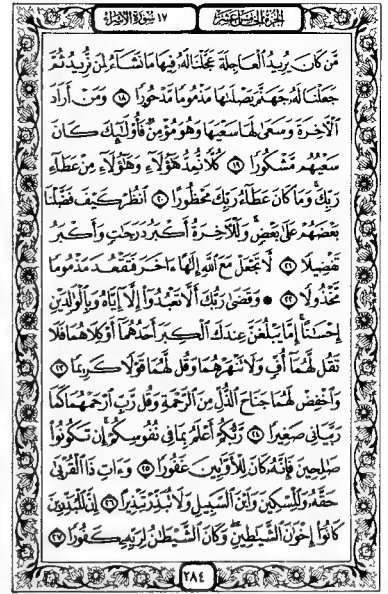 الجزء الخامس عشر
١٧ سورة الإسراء
مَّن كَانَ يُرِيدُ ٱلْعَاجِلَةَ عَجَّلْنَا لَهُۥ فِيهَا مَا نَشَآءُ لِمَن نُّرِيدُ ثُمَّ
جَعَلْنَا لَهُۥ جَهَنَّمَ يَصْلَىٰهَا مَذْمُومًا مَّدْحُورًا ۝١٨ وَمَنْ أَرَادَ
ٱلْأَخِرَةَ وَسَعَىٰ لَهَا سَعْيَهَا وَهُوَ مُؤْمِنٌ فَأُو۟لَـٰٓئِكَ كَانَ
سَعْيُهُم مَّشْكُورًا ۝١٩ كُلًّا نُّمِدُّ هَـٰٓؤُلَآءِ وَهَـٰٓؤُلَآءِ مِنْ عَطَآءِ
رَبِّكَ ۚ وَمَا كَانَ عَطَآءُ رَبِّكَ مَحْظُورًا ۝٢٠ ٱنظُرْ كَيْفَ فَضَّلْنَا
بَعْضَهُمْ عَلَىٰ بَعْضٍ ۚ وَلَلْأَخِرَةُ أَكْبَرُ دَرَجَـٰتٍ وَأَكْبَرُ
تَفْضِيلًا ۝٢١ لَّا تَجْعَلْ مَعَ ٱللَّهِ إِلَـٰهًا ءَاخَرَ فَتَقْعُدَ مَذْمُومًا
مَّخْذُولًا ۝٢٢ ۞ وَقَضَىٰ رَبُّكَ أَلَّا تَعْبُدُوٓا۟ إِلَّآ إِيَّاهُ وَبِٱلْوَٰلِدَيْنِ
إِحْسَـٰنًا ۚ إِمَّا يَبْلُغَنَّ عِندَكَ ٱلْكِبَرَ أَحَدُهُمَآ أَوْ كِلَاهُمَا فَلَا
تَقُل لَّهُمَآ أُفٍّ وَلَا تَنْهَرْهُمَا وَقُل لَّهُمَا قَوْلًا كَرِيمًا ۝٢٣
وَٱخْفِضْ لَهُمَا جَنَاحَ ٱلذُّلِّ مِنَ ٱلرَّحْمَةِ وَقُل رَّبِّ ٱرْحَمْهُمَا كَمَا
رَبَّيَانِى صَغِيرًا ۝٢٤ رَّبُّكُمْ أَعْلَمُ بِمَا فِى نُفُوسِكُمْ ۚ إِن تَكُونُوا۟
صَـٰلِحِينَ فَإِنَّهُۥ كَانَ لِلْأَوَّٰبِينَ غَفُورًا ۝٢٥ وَءَاتِ ذَا ٱلْقُرْبَىٰ
حَقَّهُۥ وَٱلْمِسْكِينَ وَٱبْنَ ٱلسَّبِيلِ وَلَا تُبَذِّرْ تَبْذِيرًا ۝٢٦ إِنَّ ٱلْمُبَذِّرِينَ
كَانُوٓا۟ إِخْوَٰنَ ٱلشَّيَـٰطِينِ ۖ وَكَانَ ٱلشَّيْطَـٰنُ لِرَبِّهِۦ كَفُورًا ۝٢٧
٢٨٤